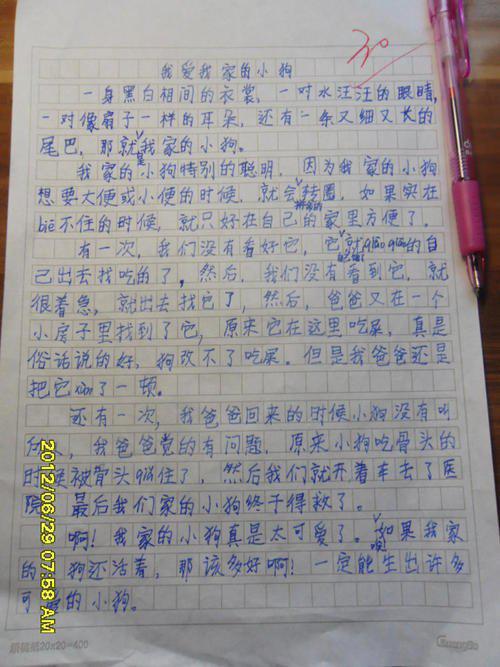 30
我爱我家的小狗
一身黑白相间的衣裳，一对水汪汪的眼睛，
一对像扇子一样的耳朵，还有一条又细又长的
尾巴，那就是我家的小狗。
我家的小狗特别的聪明，因为我家的小狗
想要大便或小便的时候，就会拼命的转圈，如果实在
biē不住的时候，就只好在自己的家里方便了。
有一次，我们没有看好它，它就自
己出去找吃的了，然后，我们没有看到它，就
很着急，就出去找它了，然后，爸爸又在一个
小房子里找到了它，原来它在这里吃屎，真是
俗话说的好，狗改不了吃屎。但是我爸爸还是
把它了一顿。
还有一次，我爸爸回来的时候小狗没有叫
我爸爸觉的有问题，原来小狗吃骨头的
时候被骨头住了，然后我们就开着车去了医
院，最后我们家的小狗终于得救了。
啊！我家的小狗真是太可爱了。如果我家
的小狗还活着，那该多好啊！一定能生出许多
可爱的小狗。
2012/06/29 07:58 AM
20x20=400
GuangBo